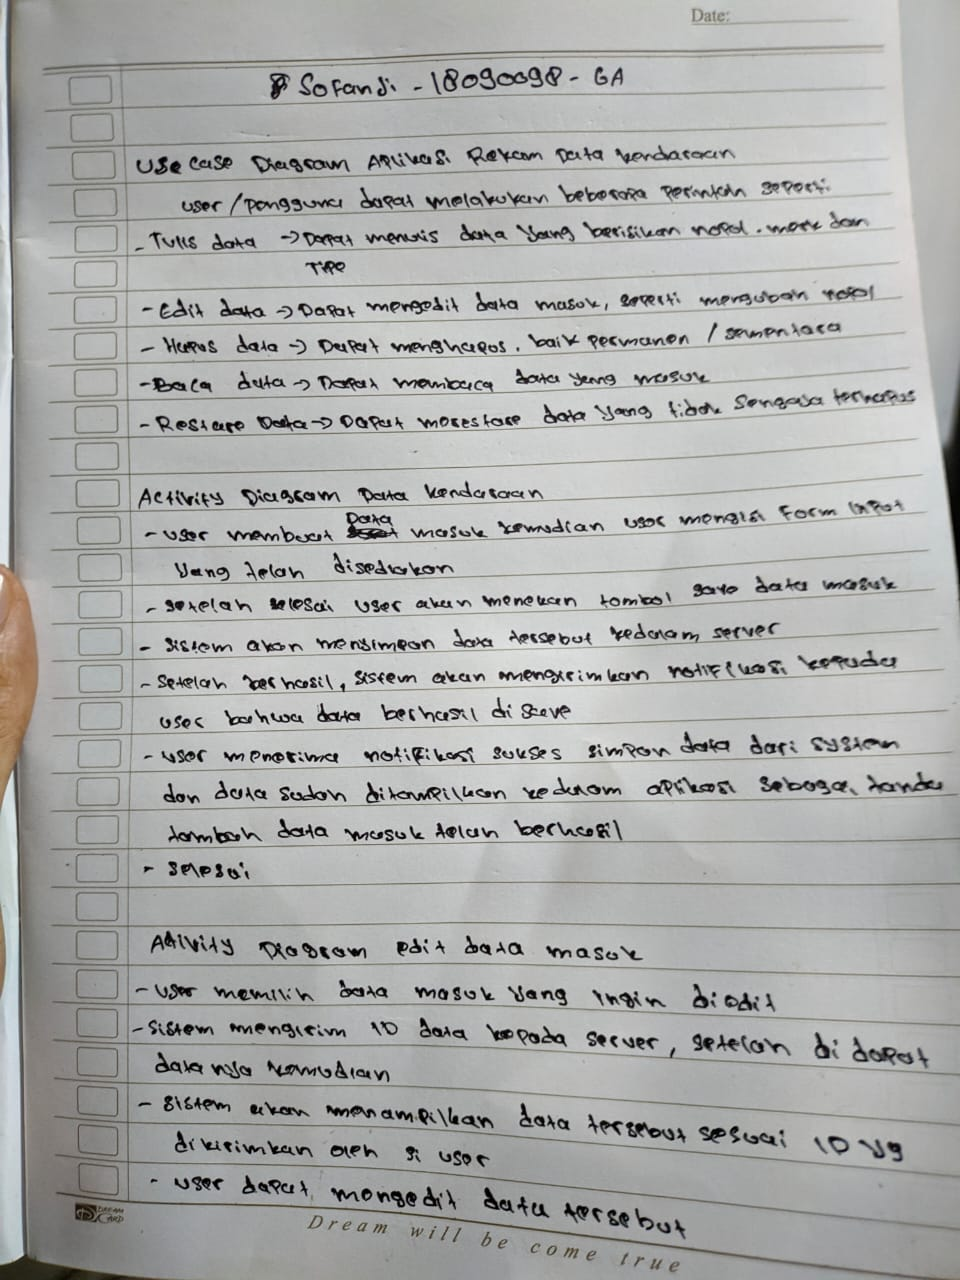 Date:
Sofandi - 18090098 - 6A
Use Case Diagram Aplikasi Rekam Data kendaraan
user / pengguna dapat melakukan beberapa perintah seperti
- Tulis data -> Dapat menulis data yang berisikan nopol. merk dan
Tipe
- Edit data -> Dapat mengedit data masuk, seperti mengubah nopol
- Hapus data -> Dapat menghapus, baik permanen / sementara
- Baca data -> Dapat membaca data yang masuk
- Restore Data -> Dapat merestore data yang tidak sengaja terhapus
Activity Diagram Data kendaraan
- user membuat Data masuk kemudian user mengisi Form Input
yang telah disediakan
- setelah selesai user akan menekan tombol save data masuk
- sistem akan menyimpan data tersebut kedalam server
- setelah berhasil, sistem akan mengirimkan notifikasi kepada
user bahwa data berhasil di save
- user menerima notifikasi sukses simpan data dari system
dan data sudah ditampilkan kedalam aplikasi sebagai tanda
tambah data masuk telah berhasil
- selesai
Ativity Diagram edit data masuk
- user memilih data masuk yang ingin diedit
- sistem mengirim ID data kepada server, setelah di dapat
data nya kemudian
- sistem akan menampilkan data tersebut sesuai ID yg
dikirimkan oleh si user
- user dapat mengedit data tersebut
DREAM CARD
Dream will be come true